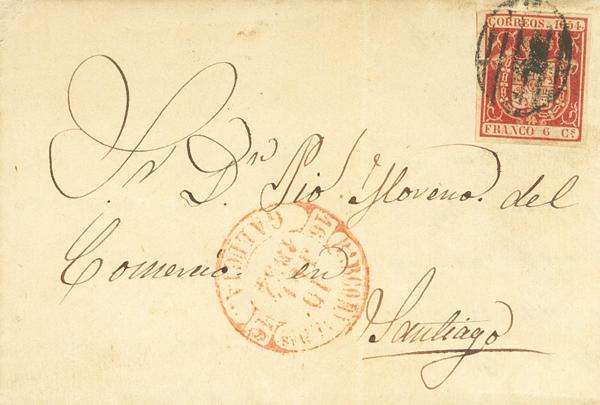 CORREOS 1854.
FRANCO 6 Cs
Sr. Dn. Pio Moreno. del
Comercio en
Santiago
GALICIA